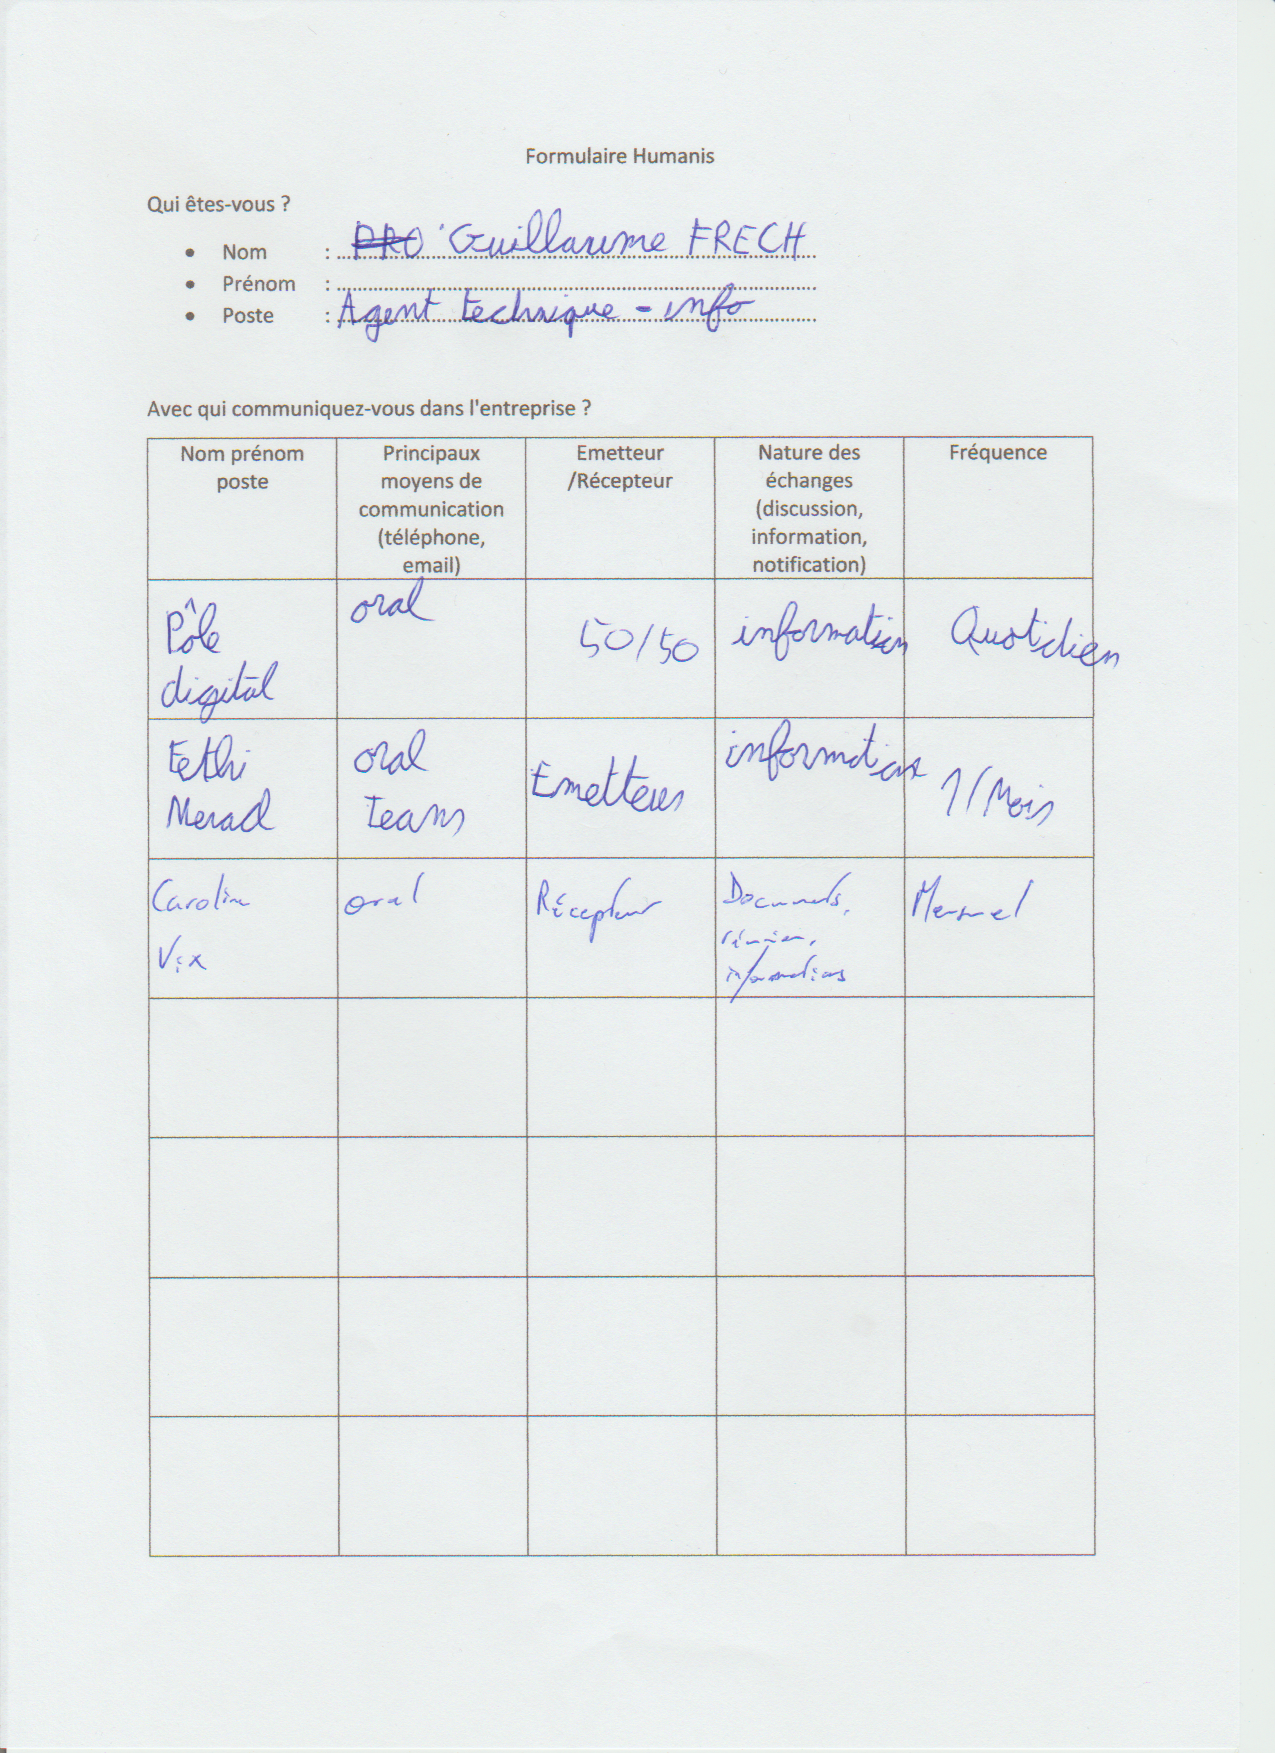 Formulaire Humanis
Qui êtes-vous ?
• Nom : PRO Guillaume FRECH
• Prénom :
• Poste : Agent technique - info
Avec qui communiquez-vous dans l'entreprise ?
Nom prénom
poste
Principaux
moyens de
communication
(téléphone,
email)
Emetteur
/Récepteur
Nature des
échanges
(discussion,
information,
notification)
Fréquence
Pôle
digital
oral
50/50
information
Quotidien
Fethi
Merad
oral
Teams
Emetteur
information
1/Mois
Caroline
Vix
oral
Récepteur
Documents,
réunion,
informations
Mensuel